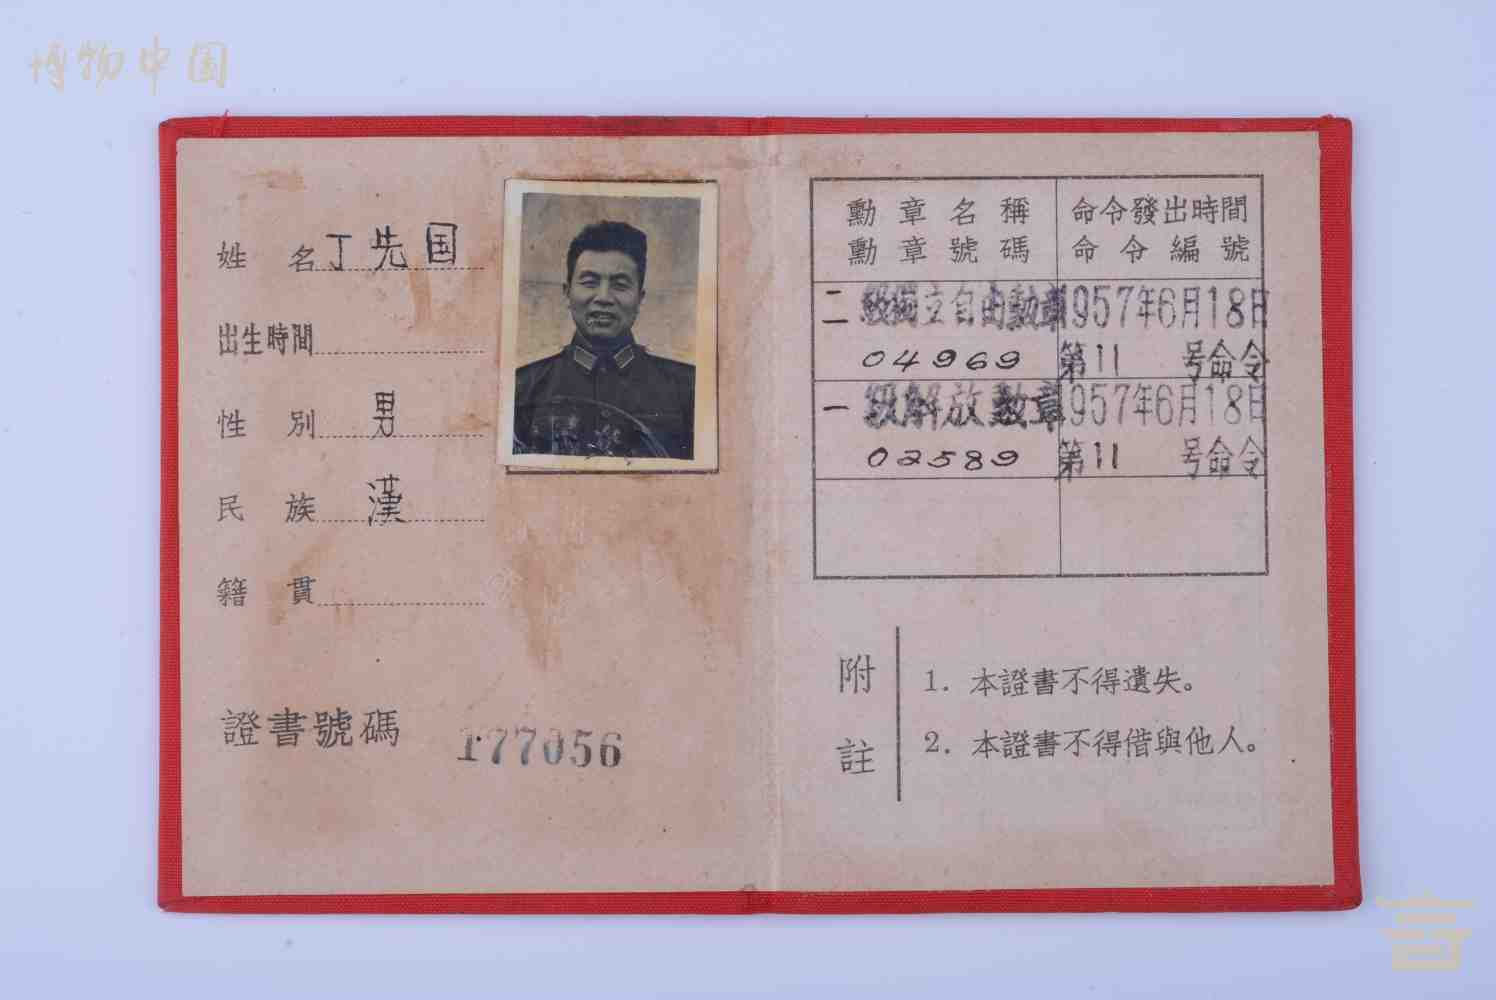 博物中国
姓 名 丁先国
出生時間
性 別 男
民 族 漢
籍 貫
證書號碼 177056
勳章名稱 命令發出時間
勳章號碼 命令編號
二級獨立自由勳章 1957年6月18日
04969 第11 号命令
一級解放勳章 1957年6月18日
02589 第11 号命令
附註
1. 本證書不得遺失。
2. 本證書不得借與他人。